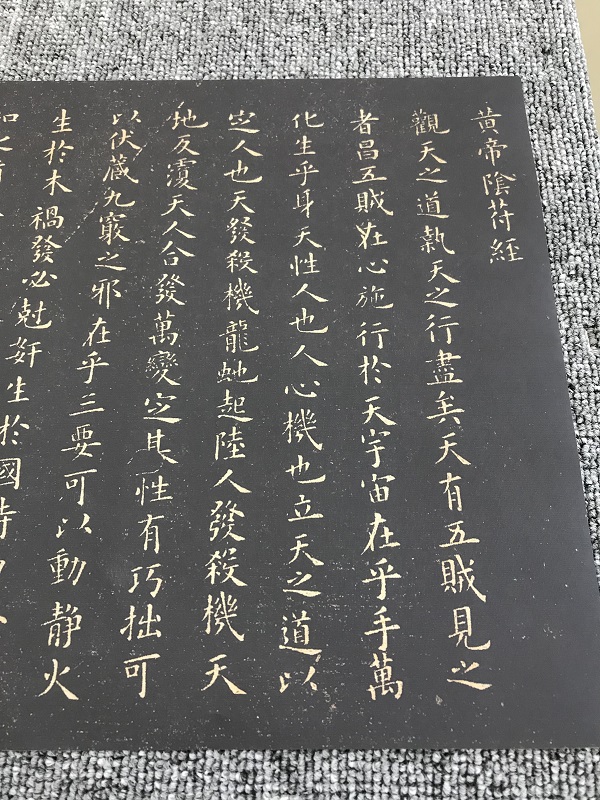 黄帝陰苻經
觀天之道執天之行盡矣天有五賊見之
者昌五賊在心施行於天宇宙在乎手萬
化生乎身天性人也人心機也立天之道以
㝎人也天發殺機龍虵起陸人發殺機天
地反覆天人合發萬變㝎其性有巧拙可
以伏藏九竅之邪在乎三要可以動静火
生於木禍發必尅奸生於國時